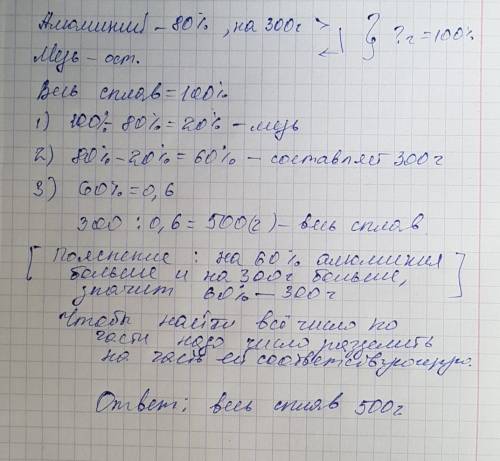 Алюминий – 80%, на 300г > } ? г = 100%
Медь – ост.
Весь сплав = 100%
1) 100% - 80% = 20% – медь
2) 80% – 20% = 60% – составляет 300г
3) 60% = 0,6
300 : 0,6 = 500(г) – весь сплав
[Пояснение: на 60% алюминия
больше и на 300г больше,
значит 60% – 300г]
Чтобы найти всё число по
части надо число разделить
на часть ей соответствующую.
Ответ: весь сплав 500г